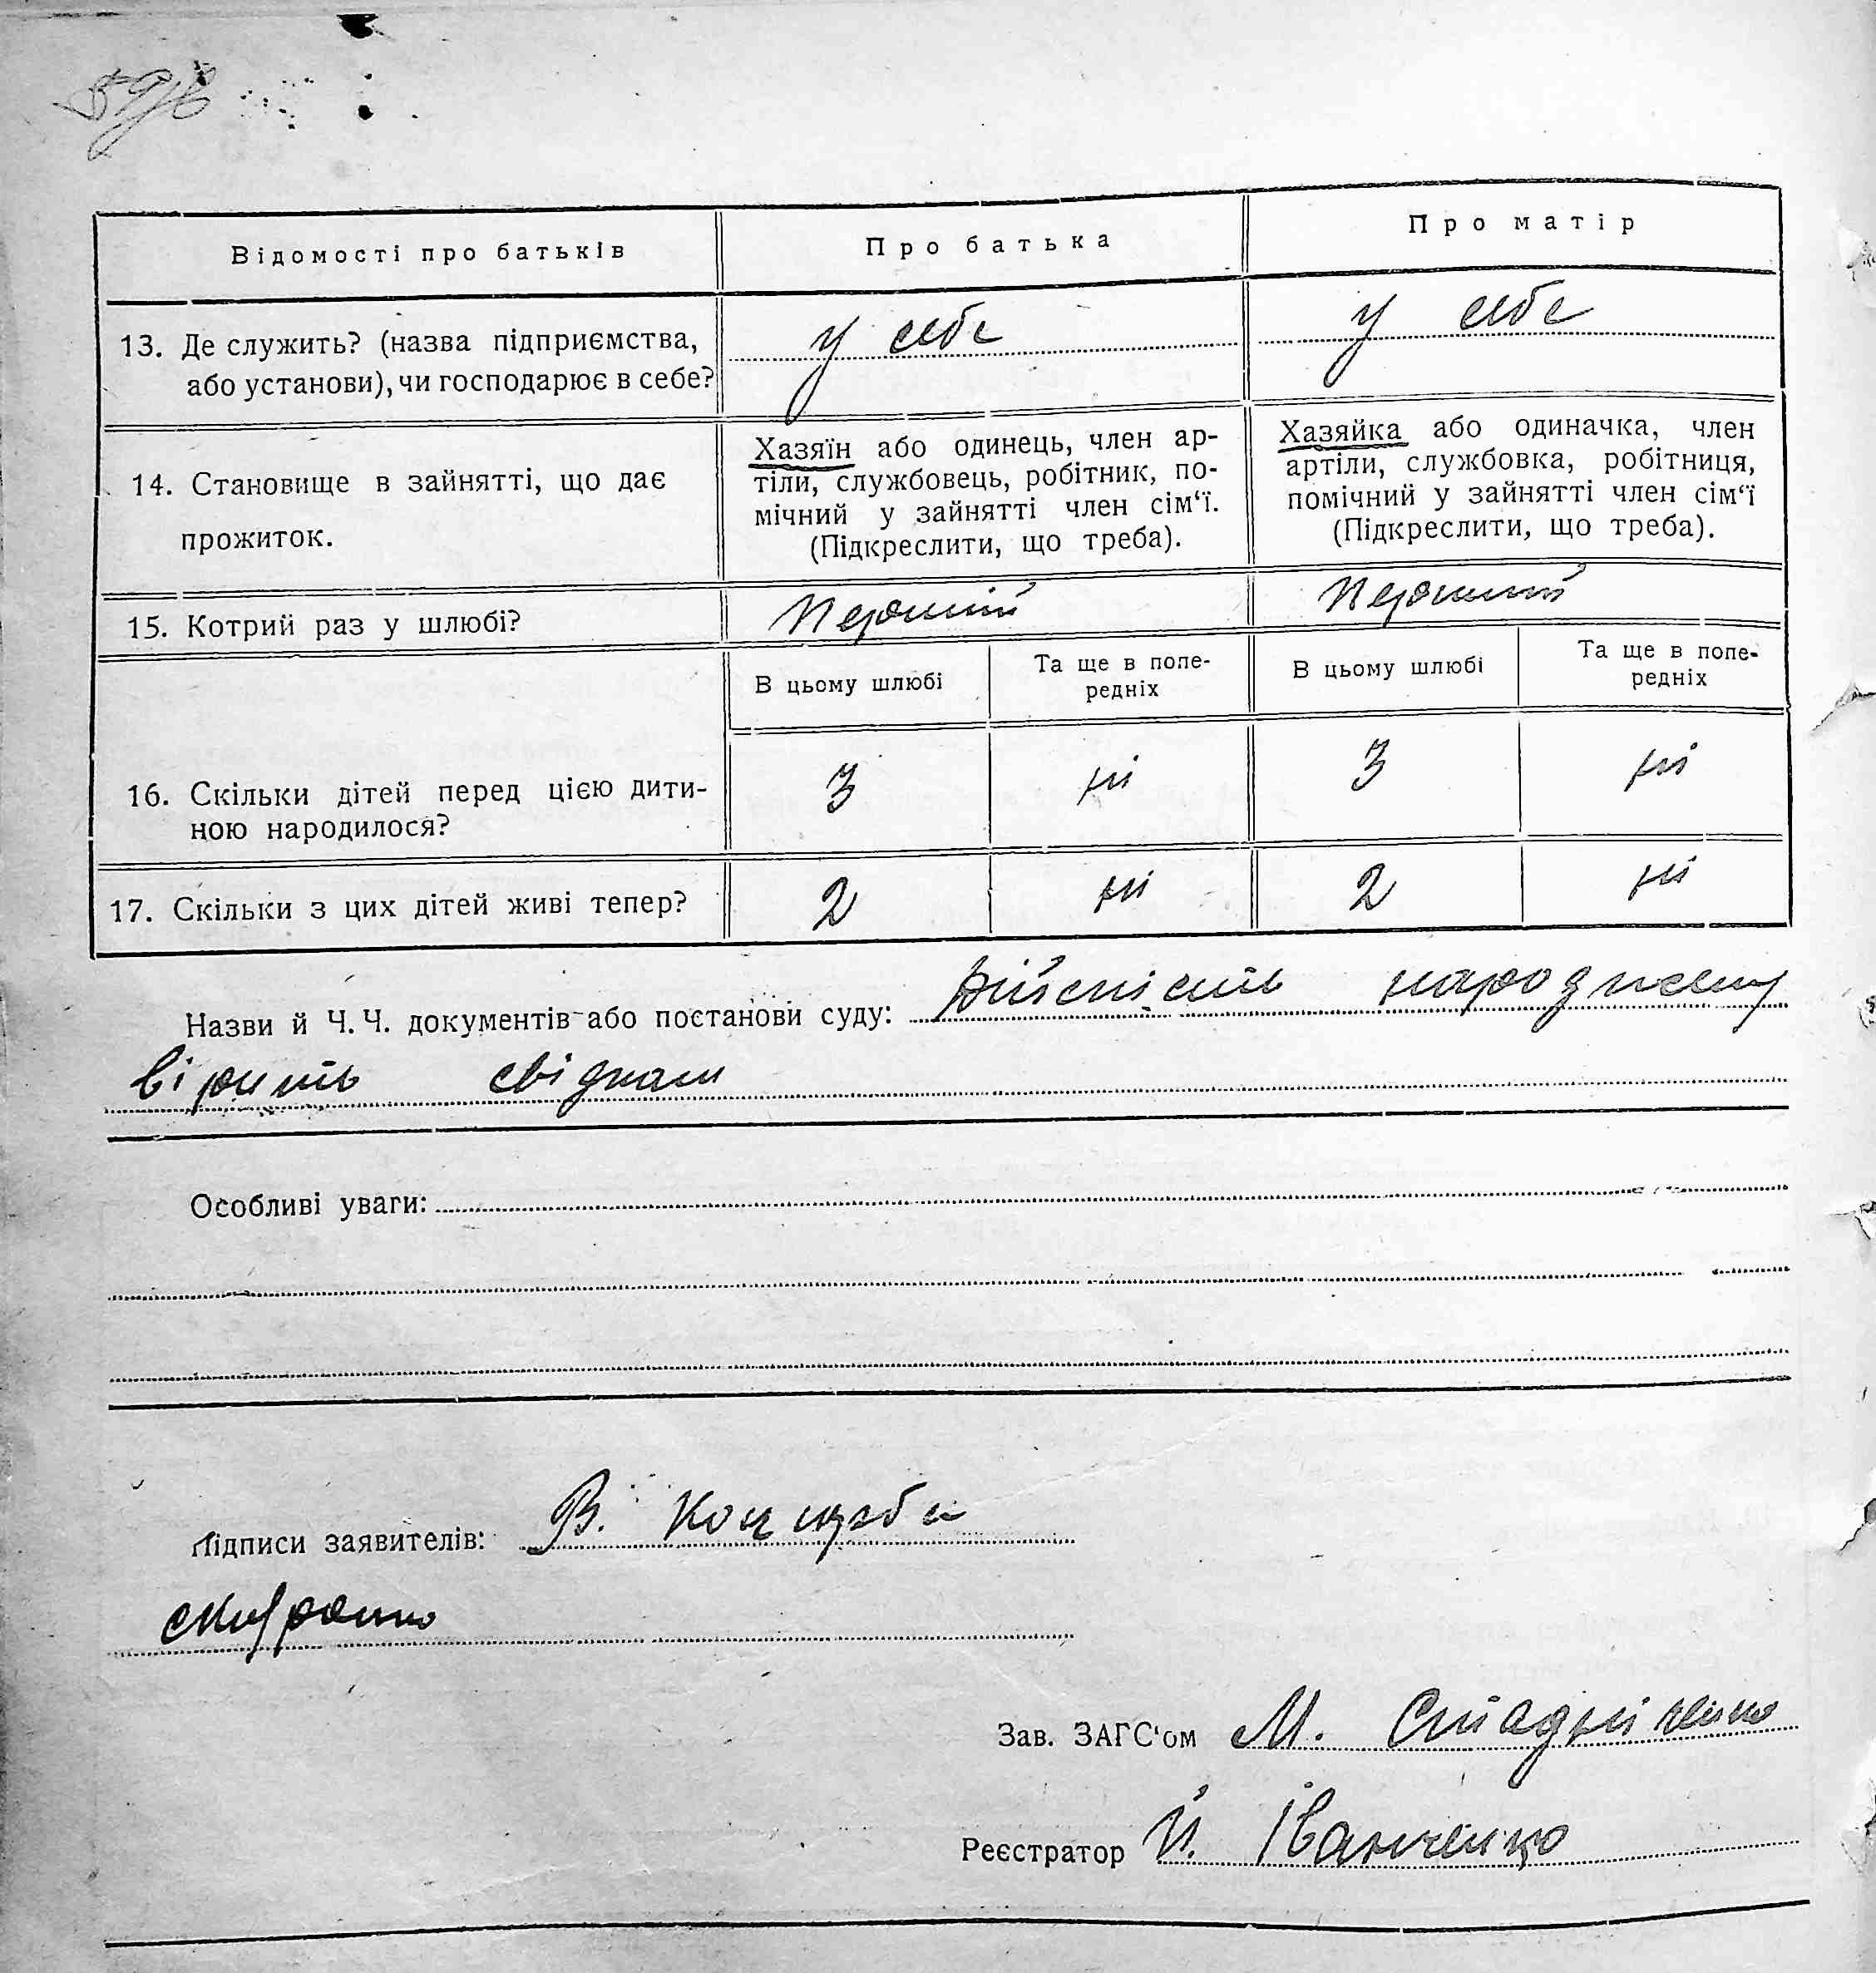 Відомості про батьків
Про батька
Про матір
13. Де служить? (назва підприємства,
або установи), чи господарює в себе?
у себе
у себе
14. Становище в зайнятті, що дає
прожиток.
Хазяїн або одинець, член ар-
тіли, службовець, робітник, по-
мічний у зайнятті член сім‘ї.
(Підкреслити, що треба).
Хазяйка або одиначка, член
артіли, службовка, робітниця,
помічний у зайнятті член сім‘ї
(Підкреслити, що треба).
15. Котрий раз у шлюбі?
Перший
Перший
16. Скільки дітей перед цією дити-
ною народилося?
В цьому шлюбі
Та ще в попе-
редніх
В цьому шлюбі
Та ще в попе-
редніх
3
ні
3
ні
17. Скільки з цих дітей живі тепер?
2
ні
2
ні
Назви й Ч. Ч. документів або постанови суду: Дійсність народжену
вірить
Особливі уваги:
Підписи заявителів: В. Коцюба
Зав. ЗАГС‘ом М. Стадніченко
Реєстратор Й. Іванченко